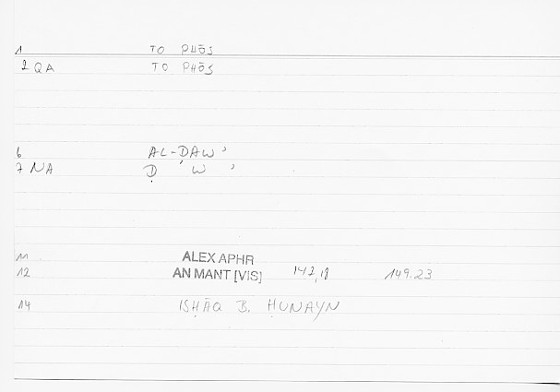 1 TO PHŌS
2 QA TO PHŌS
6 AL-ḌAWʾ
7 NA Ḍ W ʾ
11 ALEX APHR
12 AN MANT [VIS] 142,18 149.23
14 ISḤĀQ B. ḤUNAYN